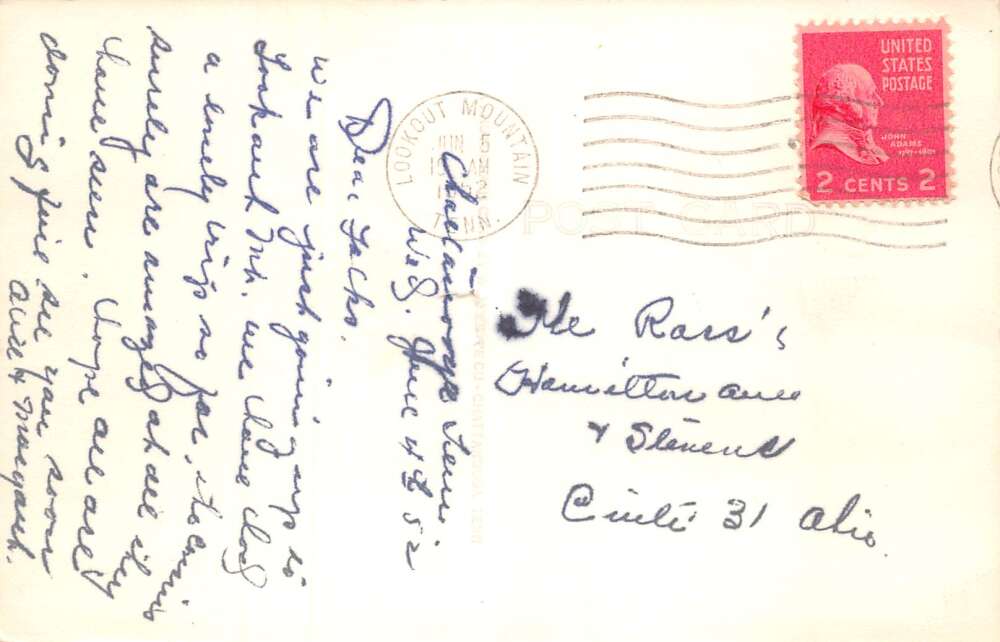 Chattanooga Tenn.
Wed. June 4th 52
Dear Folks.
We are just going up to
Lookout Mt. we have had
a lovely trip so far,
surely are amazed at all they
have seen. Hope all are
doing fine see you soon
Margaret.
LOOKOUT MOUNTAIN
JUN 5
TENN.
UNITED
STATES
POSTAGE
JOHN
ADAMS
1797-1801
2 CENTS 2
POST CARD
The Ross's
Hamilton Ave
+ Stevens
Cinti 31 Ohio.